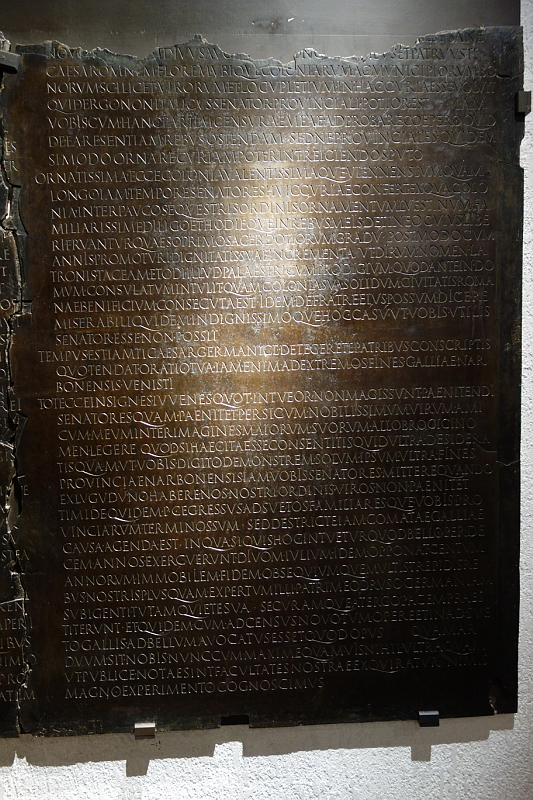 NOVO DIVVS AVG PATRVVS TI
CAESAR OMNEM FLOREM VBIQVE COLONIARVM AC MVNICIPIORVM BO
NORVM SCILICET VIRORVM ET LOCVPLETIVM IN HAC CVRIA ESSE VOLVIT
QVID ERGO NON ITALICVS SENATOR PROVINCIALI POTIOR EST IAM
VOBIS CVM HANC PARTEM CENSVRAE MEAE ADPROBARE COEPERO QVID
DE EA RE SENTIAM REBVS OSTENDAM SED NE PROVINCIALES QVIDEM
SI MODO ORNARE CVRIAM POTERINT REICIENDOS PVTO
ORNATISSIMA ECCE COLONIA VALENTISSIMAQVE VIENNENSIVM QVAM
LONGO IAM TEMPORE SENATORES HVIC CVRIAE CONFERT EX QVA COLO
NIA INTER PAVCOS EQVESTRIS ORDINIS ORNAMENTVM L VESTINVM FA
MILIARISSIME DILIGO ET HODIEQVE IN REBVS MEIS DETINEO CVIVS LIBE
RI FRVANTVR QVAESO PRIMO SACERDOTIORVM GRADV POST MODO CVM
ANNIS PROMOTVRI DIGNITATIS SVAE INCREMENTA VT DIRVM NOMEN LA
TRONIS TACEAM ET ODI ILLVD PALAESTRICVM PRODIGIVM QVOD ANTE IN DO
MVM CONSVLATVM INTVLIT QVAM COLONIA SVA SOLIDVM CIVITATIS ROMA
NAE BENIFICIVM CONSECVTA EST IDEM DE FRATRE EIVS POSSVM DICERE
MISERABILI QVIDEM INDIGNISSIMOQVE HOC CASV VT VOBIS VTILIS
SENATOR ESSE NON POSSIT
TEMPVS EST IAM TI CAESAR GERMANICE DETEGERE TE PATRIBVS CONSCRIPTIS
QVO TENDAT ORATIO TVA IAM ENIM AD EXTREMOS FINES GALLIAE NAR
BONENSIS VENISTI
TOT ECCE INSIGNES IVVENES QVOT INTVEOR NON MAGIS SVNT PAENITENDI
SENATORES QVAM PAENITET PERSICVM NOBILISSIMVM VIRVM AMI
CVM MEVM INTER IMAGINES MAIORVM SVORVM ALLOBROGICI NO
MEN LEGERE QVOD SI HAEC ITA ESSE CONSENTITIS QVID VLTRA DESIDERA
TIS QVAM VT VOBIS DIGITO DEMONSTREM SOLVM IPSVM VLTRA FINES
PROVINCIAE NARBONENSIS IAM VOBIS SENATORES MITTERE QVANDO
EX LVGVDVNO HABERE NOS NOSTRI ORDINIS VIROS NON PAENITET
TIMIDE QVIDEM P C EGRESSVS ADSVETOS FAMILIARESQVE VOBIS PRO
VINCIARVM TERMINOS SVM SED DESTRICTE IAM COMATAE GALLIAE
CAVSA AGENDA EST IN QVA SI QVIS HOC INTVETVR QVOD BELLO PER DE
CEM ANNOS EXERCVERVNT DIVOM IVLIVM IDEM OPPONAT CENTVM
ANNORVM IMMOBILEM FIDEM OBSEQVIVMQVE MVLTIS TREPIDIS RE
BVS NOSTRIS PLVS QVAM EXPERTVM ILLI PATRI MEO DRVSO GERMANIAM
SVBIGENTI TVTAM QVIETE SVA SECVRAMQVE A TERGO PACEM PRAES
TITERVNT ET QVIDEM CVM AD CENSVS NOVO TVM OPERE ET INADSVE
TO GALLIS AD BELLVM AVOCATVS ESSET QVOD OPVS QVAM AR
DVVM SIT NOBIS NVNC CVM MAXIME QVAMVIS NIHIL VLTRA QVAM
VT PVBLICE NOTAE SINT FACVLTATES NOSTRAE EXQVIRATVR NIMIS
MAGNO EXPERIMENTO COGNOSCIMVS